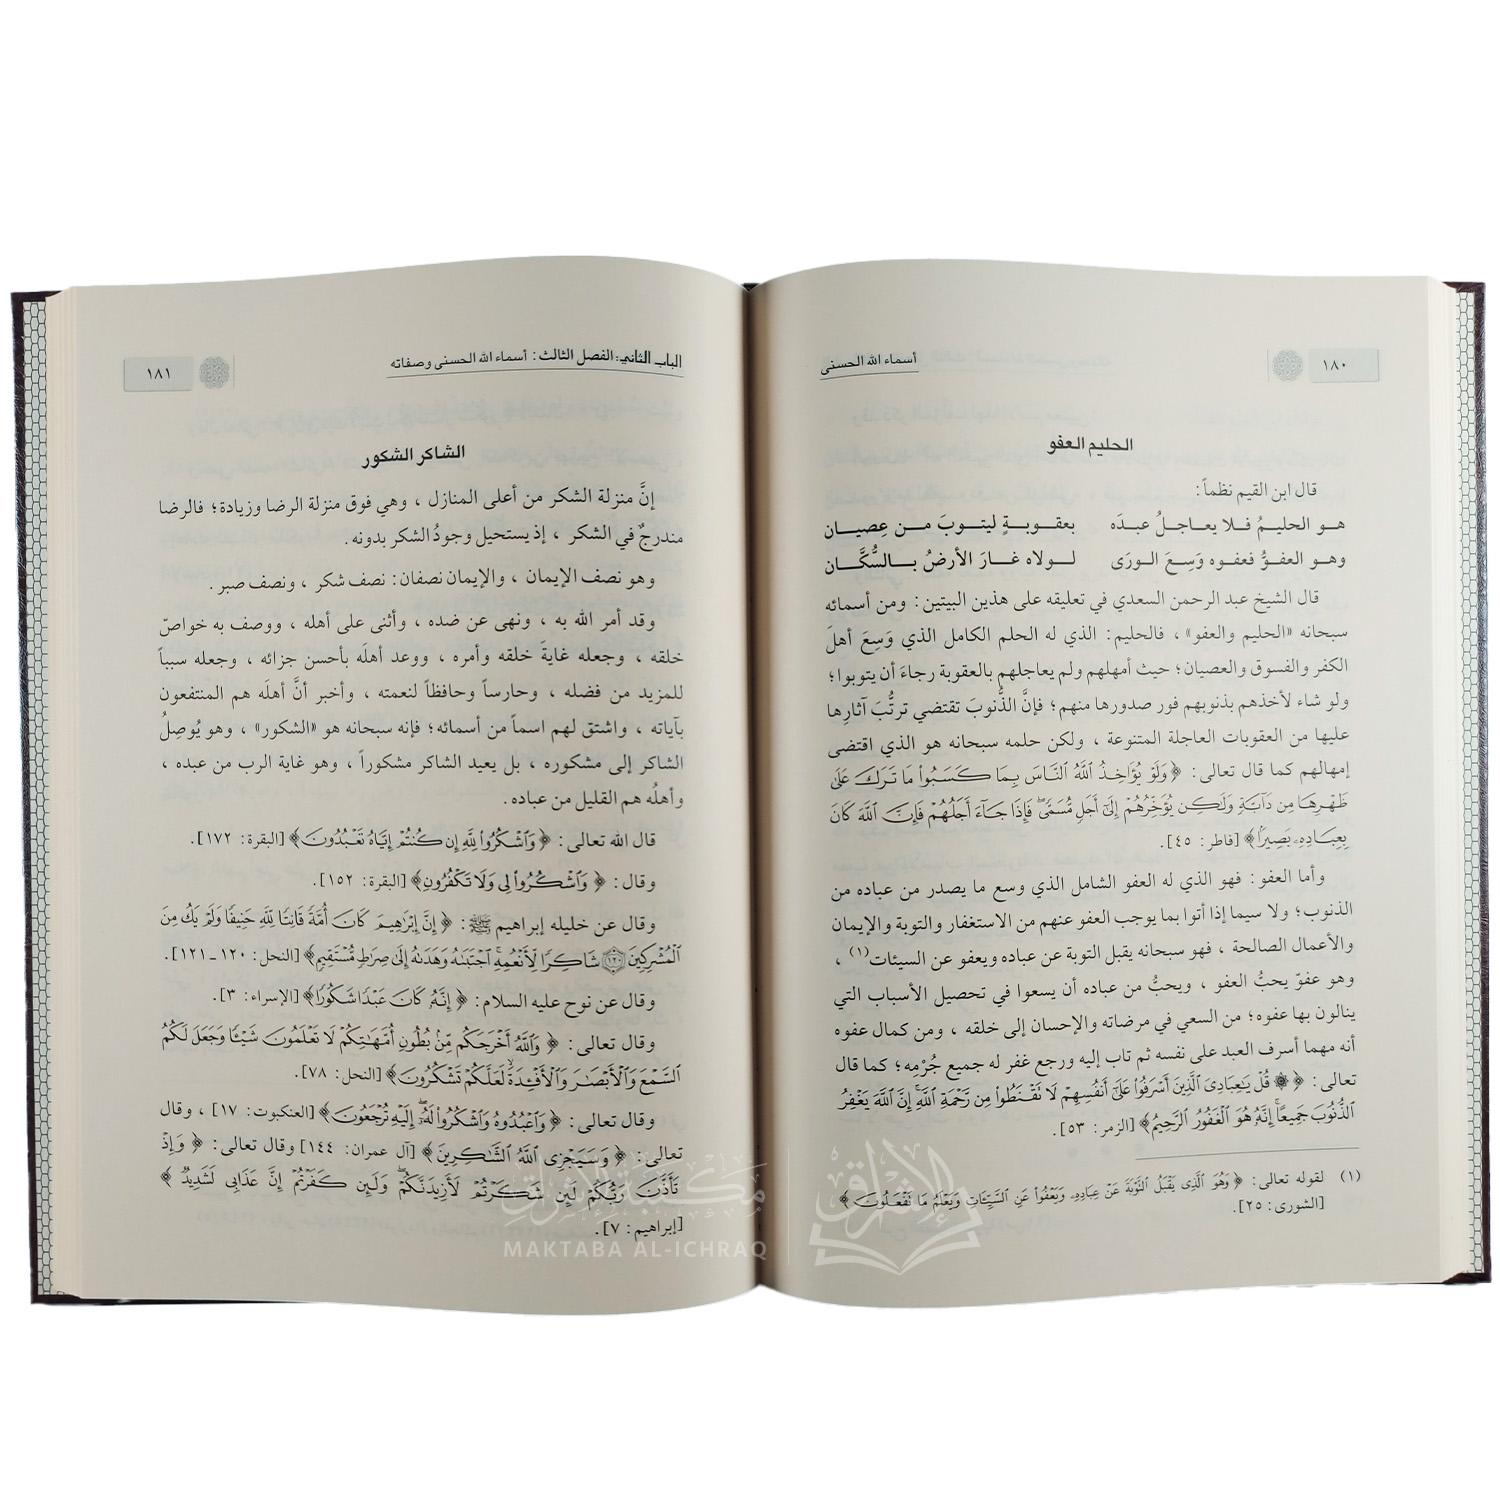 ١٨٠
أسماء الله الحسنى
الحليم العفو
قال ابن القيم نظماً:
هـو الحليـمُ فـلا يعـاجـلُ عبـدَه بعقـوبـةٍ ليتـوبَ مـن عصيـان
وهـو العفـوُّ فعفـوه وَسِـعَ الـورَى لـولاه غـارَ الأرضُ بـالسُّكَّـان
قال الشيخ عبد الرحمن السعدي في تعليقه على هذين البيتين: ومن أسمائه
سبحانه «الحليم والعفو»، فالحليم: الذي له الحلم الكامل الذي وَسِعَ أهلَ
الكفر والفسوق والعصيان؛ حيث أمهلهم ولم يعاجلهم بالعقوبة رجاءَ أن يتوبوا؛
ولو شاء لأخذهم بذنوبهم فور صدورها منهم؛ فإنَّ الذُّنوبَ تقتضي ترتُّبَ آثارِها
عليها من العقوبات العاجلة المتنوعة ، ولكن حلمه سبحانه هو الذي اقتضى
إمهالهم كما قال تعالى: ﴿ وَلَوْ يُؤَاخِذُ ٱللَّهُ ٱلنَّاسَ بِمَا كَسَبُوا۟ مَا تَرَكَ عَلَىٰ
ظَهْرِهَا مِن دَآبَّةٍ وَلَٰكِن يُؤَخِّرُهُمْ إِلَىٰٓ أَجَلٍ مُّسَمًّى ۖ فَإِذَا جَآءَ أَجَلُهُمْ فَإِنَّ ٱللَّهَ كَانَ
بِعِبَادِهِۦ بَصِيرًۢا ﴾ [فاطر: ٤٥].
وأما العفو: فهو الذي له العفو الشامل الذي وسع ما يصدر من عباده من
الذنوب؛ ولا سيما إذا أتوا بما يوجب العفو عنهم من الاستغفار والتوبة والإيمان
والأعمال الصالحة ، فهو سبحانه يقبل التوبة عن عباده ويعفو عن السيئات(١) ،
وهو عفوّ يحبُّ العفو ، ويحبُّ من عباده أن يسعوا في تحصيل الأسباب التي
ينالون بها عفوه؛ من السعي في مرضاته والإحسان إلى خلقه ، ومن كمال عفوه
أنه مهما أسرف العبد على نفسه ثم تاب إليه ورجع غفر له جميع جُرْمِه؛ كما قال
تعالى: ﴿ ۞ قُلْ يَٰعِبَادِىَ ٱلَّذِينَ أَسْرَفُوا۟ عَلَىٰٓ أَنفُسِهِمْ لَا تَقْنَطُوا۟ مِن رَّحْمَةِ ٱللَّهِ ۚ إِنَّ ٱللَّهَ يَغْفِرُ
ٱلذُّنُوبَ جَمِيعًا ۚ إِنَّهُۥ هُوَ ٱلْغَفُورُ ٱلرَّحِيمُ ﴾ [الزمر: ٥٣].
(١) لقوله تعالى: ﴿ وَهُوَ ٱلَّذِى يَقْبَلُ ٱلتَّوْبَةَ عَنْ عِبَادِهِۦ وَيَعْفُوا۟ عَنِ ٱلسَّيِّـَٔاتِ وَيَعْلَمُ مَا تَفْعَلُونَ ﴾
[الشورى: ٢٥].
الباب الثاني: الفصل الثالث: أسماء الله الحسنى وصفاته
١٨١
الشاكر الشكور
إنَّ منزلة الشكر من أعلى المنازل ، وهي فوق منزلة الرضا وزيادة؛ فالرضا
مندرجٌ في الشكر ، إذ يستحيل وجودُ الشكر بدونه.
وهو نصف الإيمان ، والإيمان نصفان: نصف شكر ، ونصف صبر .
وقد أمر الله به ، ونهى عن ضده ، وأثنى على أهله ، ووصف به خواصّ
خلقه ، وجعله غايةَ خلقه وأمره ، ووعد أهلَه بأحسن جزائه ، وجعله سبباً
للمزيد من فضله ، وحارساً وحافظاً لنعمته ، وأخبر أنَّ أهلَه هم المنتفعون
بآياته ، واشتق لهم اسماً من أسمائه؛ فإنه سبحانه هو «الشكور» ، وهو يُوصِلُ
الشاكر إلى مشكوره ، بل يعيد الشاكر مشكوراً ، وهو غاية الرب من عبده ،
وأهلُه هم القليل من عباده.
قال الله تعالى: ﴿ وَٱشْكُرُوا۟ لِلَّهِ إِن كُنتُمْ إِيَّاهُ تَعْبُدُونَ ﴾ [البقرة: ١٧٢].
وقال: ﴿ وَٱشْكُرُوا۟ لِى وَلَا تَكْفُرُونِ ﴾ [البقرة: ١٥٢].
وقال عن خليله إبراهيم ﷺ: ﴿ إِنَّ إِبْرَٰهِيمَ كَانَ أُمَّةً قَانِتًا لِّلَّهِ حَنِيفًا وَلَمْ يَكُ مِنَ
ٱلْمُشْرِكِينَ ١٢٠ شَاكِرًا لِّأَنْعُمِهِ ۚ ٱجْتَبَىٰهُ وَهَدَىٰهُ إِلَىٰ صِرَٰطٍ مُّسْتَقِيمٍ ﴾ [النحل: ١٢٠ ـ ١٢١].
وقال عن نوح عليه السلام: ﴿ إِنَّهُۥ كَانَ عَبْدًا شَكُورًا ﴾ [الإسراء: ٣].
وقال تعالى: ﴿ وَٱللَّهُ أَخْرَجَكُم مِّنۢ بُطُونِ أُمَّهَٰتِكُمْ لَا تَعْلَمُونَ شَيْـًٔا وَجَعَلَ لَكُمُ
ٱلسَّمْعَ وَٱلْأَبْصَٰرَ وَٱلْأَفْـِٔدَةَ ۙ لَعَلَّكُمْ تَشْكُرُونَ ﴾ [النحل: ٧٨].
وقال تعالى: ﴿ وَٱعْبُدُوهُ وَٱشْكُرُوا۟ لَهُۥٓ ۖ إِلَيْهِ تُرْجَعُونَ ﴾ [العنكبوت: ١٧] ، وقال
تعالى: ﴿ وَسَيَجْزِى ٱللَّهُ ٱلشَّٰكِرِينَ ﴾ [آل عمران: ١٤٤] وقال تعالى: ﴿ وَإِذْ
تَأَذَّنَ رَبُّكُمْ لَئِن شَكَرْتُمْ لَأَزِيدَنَّكُمْ ۖ وَلَئِن كَفَرْتُمْ إِنَّ عَذَابِى لَشَدِيدٌ ﴾
[إبراهيم: ٧].
مكتبة الإشراق
MAKTABA AL-ICHRAQ
الإشراق